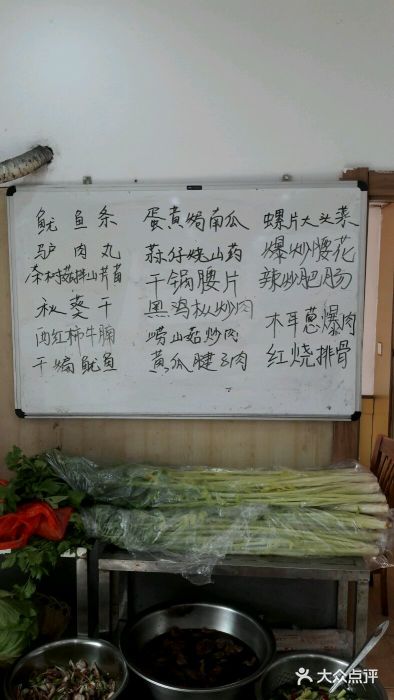 鱿鱼条 蛋黄焗南瓜 螺片大头菜
驴肉丸 蒜仔烧山药 爆炒腰花
茶树菇拌山芹苗 干锅腰片 辣炒肥肠
秋葵干 黑鸡枞炒肉 木耳葱爆肉
西红柿牛腩 崂山菇炒肉 红烧排骨
干煸鱿鱼 黄瓜腱子肉
大众点评